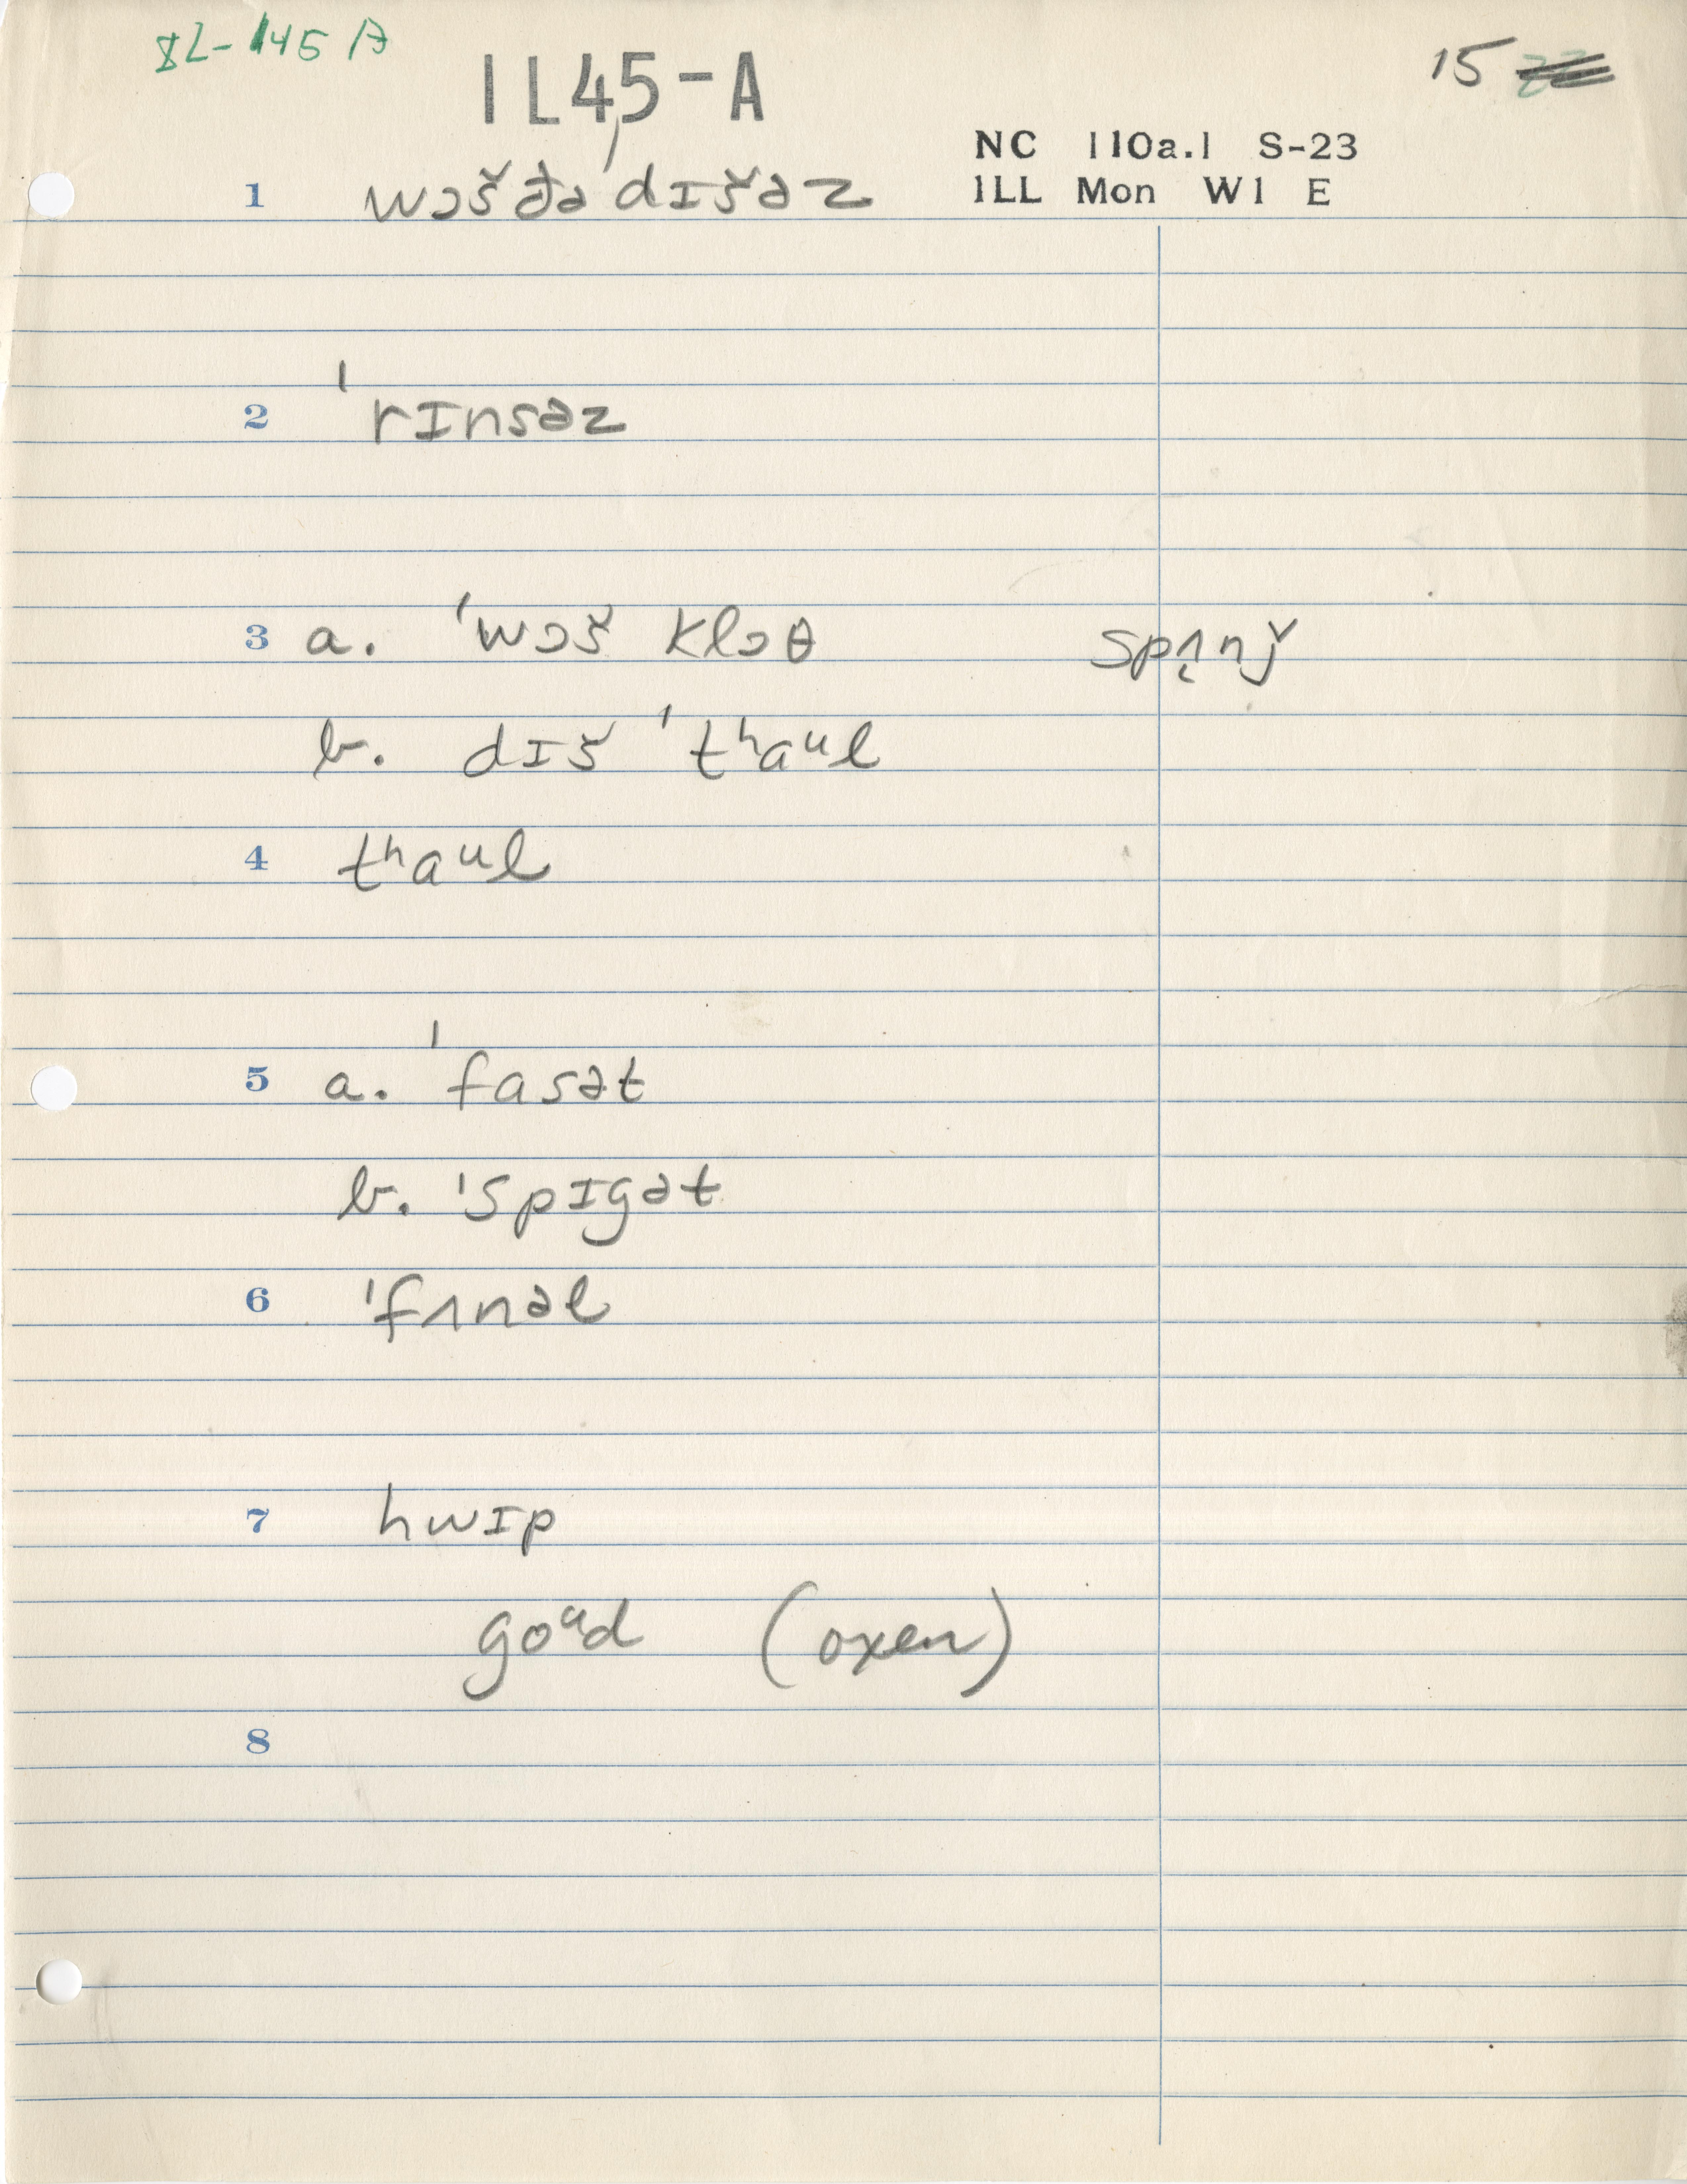 IL-145 A
1L45-A
15
NC 110a.1 S-23
1LL Mon W1 E
1 wɔšðə ˈdɪšəz
2 ˈrɪnsəz
3 a. ˈwɔš klɔθ spʌ̨nǰ
b. dɪš ˈtʰaᵘl
4 tʰaᵘl
5 a. ˈfasət
b. ˈspɪgət
6 ˈfʌnəl
7 hwɪp
goᵘd (oxen)
8